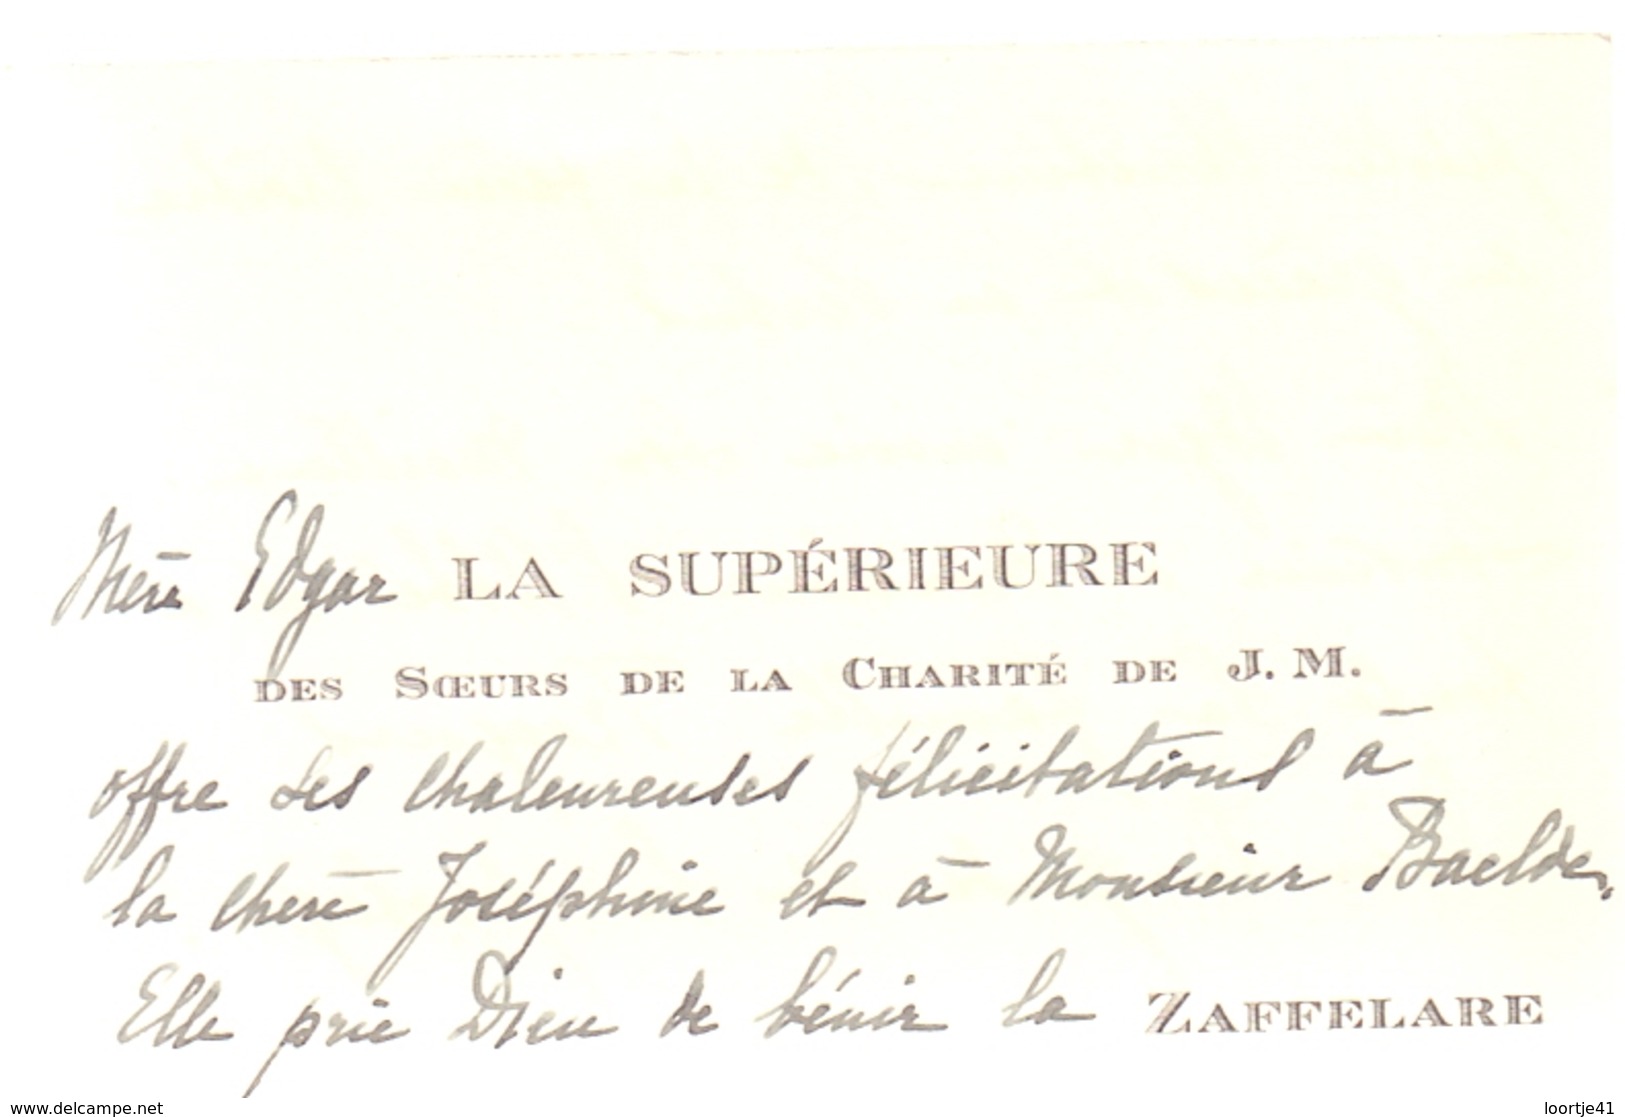 Mère Edgar LA SUPÉRIEURE
DES SŒURS DE LA CHARITÉ DE J. M.
offre ses chaleureuses félicitations à
la chère Joséphine et à Monsieur Baelde.
Elle prie Dieu de bénir la ZAFFELARE
www.delcampe.net
loortje41